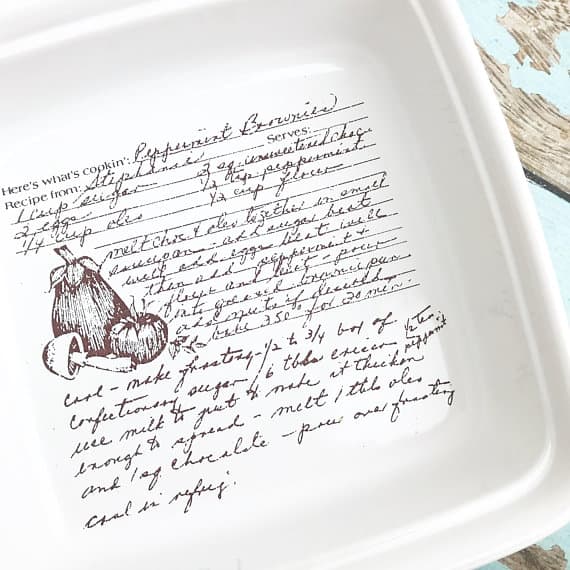 Here's what's cookin': Peppermint Brownies
Recipe from: Stephanie Serves:
1 cup sugar 2 sq. unsweetened choc.
2 eggs 1/2 tsp peppermint
1/4 cup oleo 1/2 cup flour
melt choc & oleo together in small
saucepan - add sugar beat
well add eggs beat well
then add peppermint &
flour and salt - pour
into greased brownie pan
add nuts if desired
bake 350° for 20 min.
cool - make frosting - 1/2 to 3/4 box of
confectionary sugar, 6 tbls crisco 1/2 tsp peppermint
use milk to just to make it thicken
enough to spread - melt 1 tbls oleo
and 1 sq. chocolate - pour over frosting
cool in refrig.